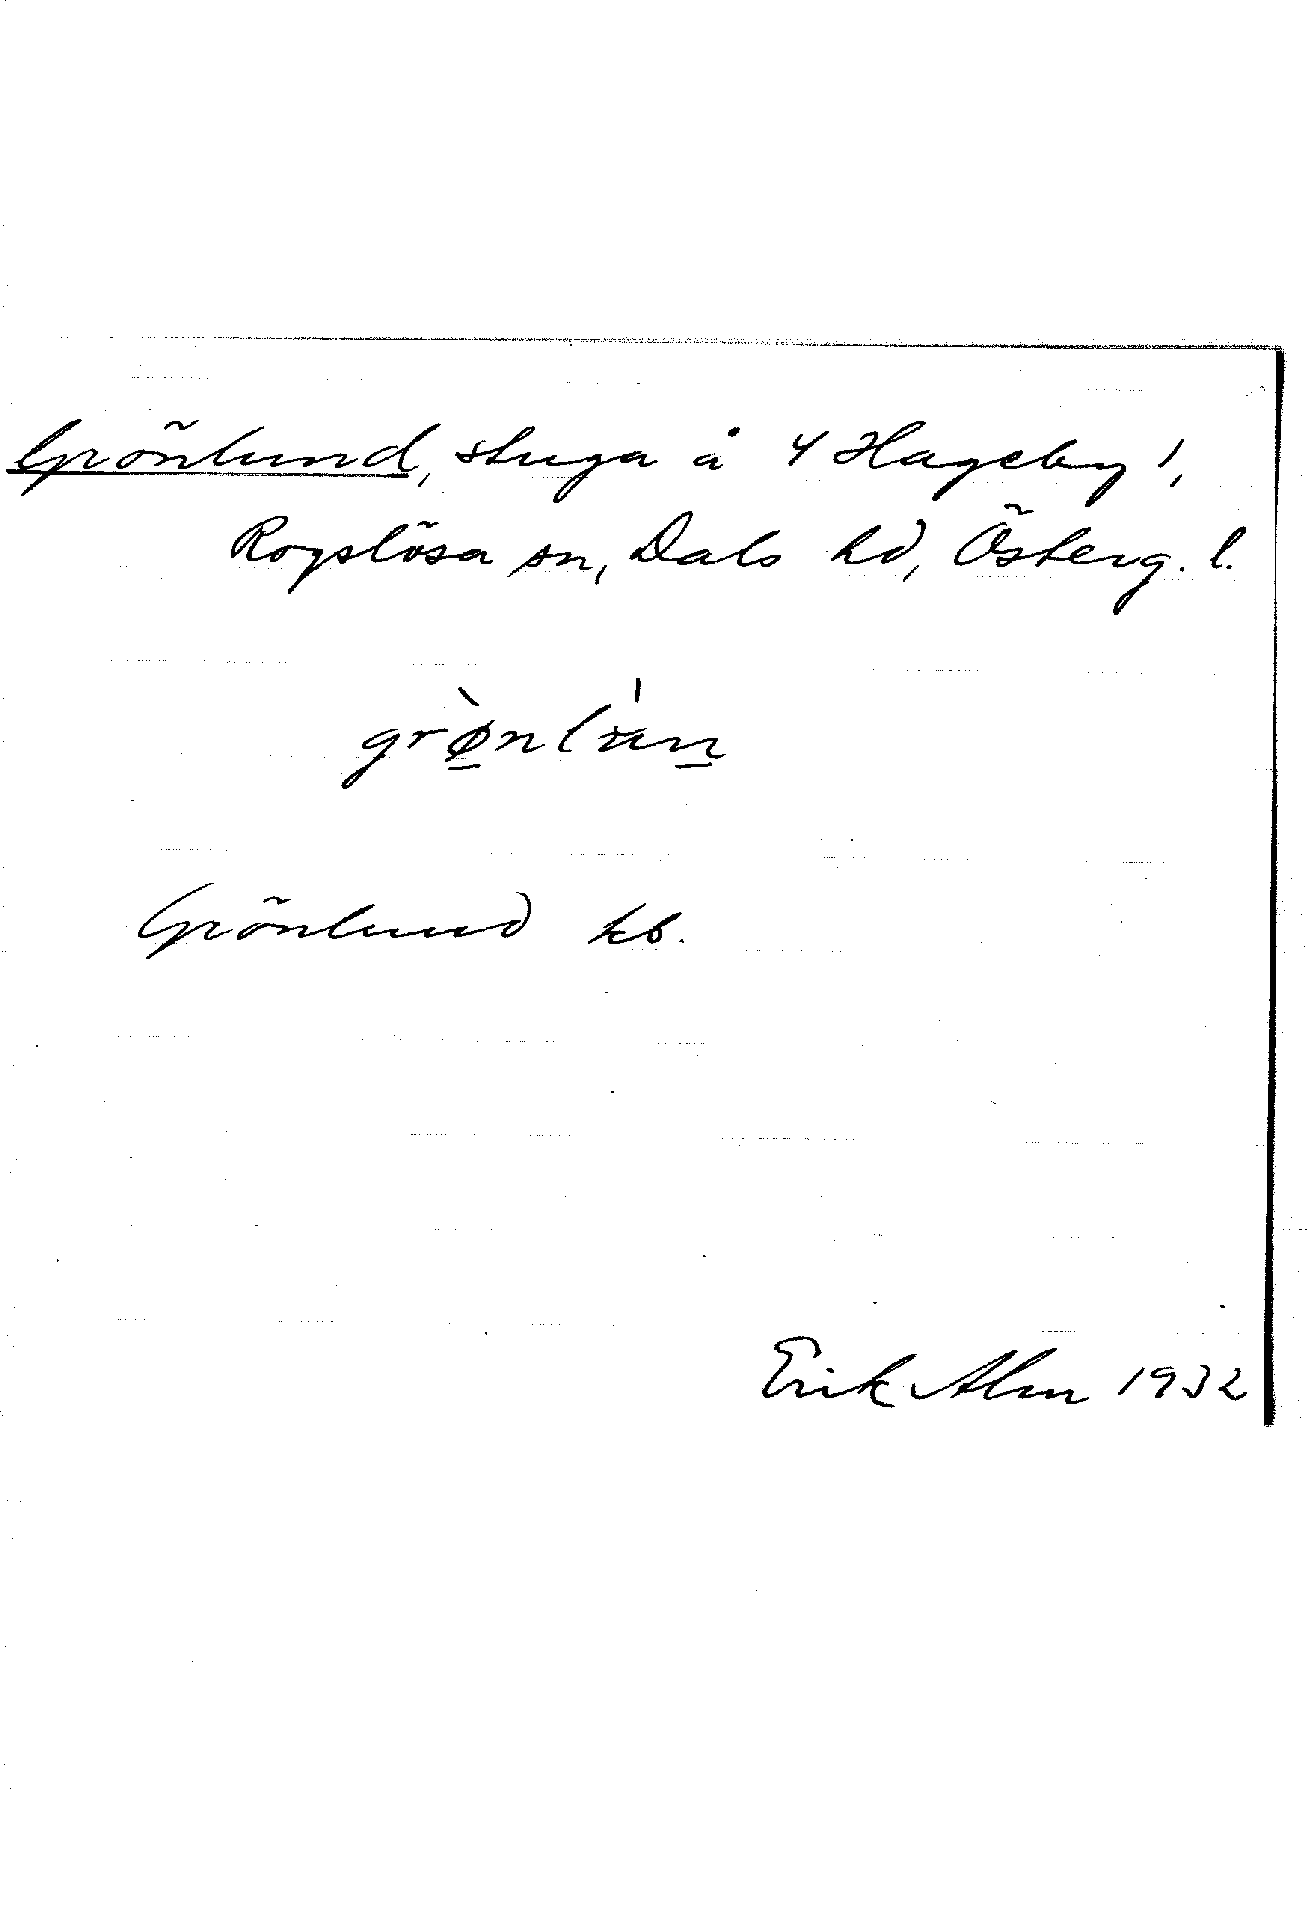 Grönlund, stuga å 4 Hageby 1,
Rogslösa sn, Dals hd, Österg. l.
grø̠̀nlún̠
Grönlund kb.
Erik Alm 1932